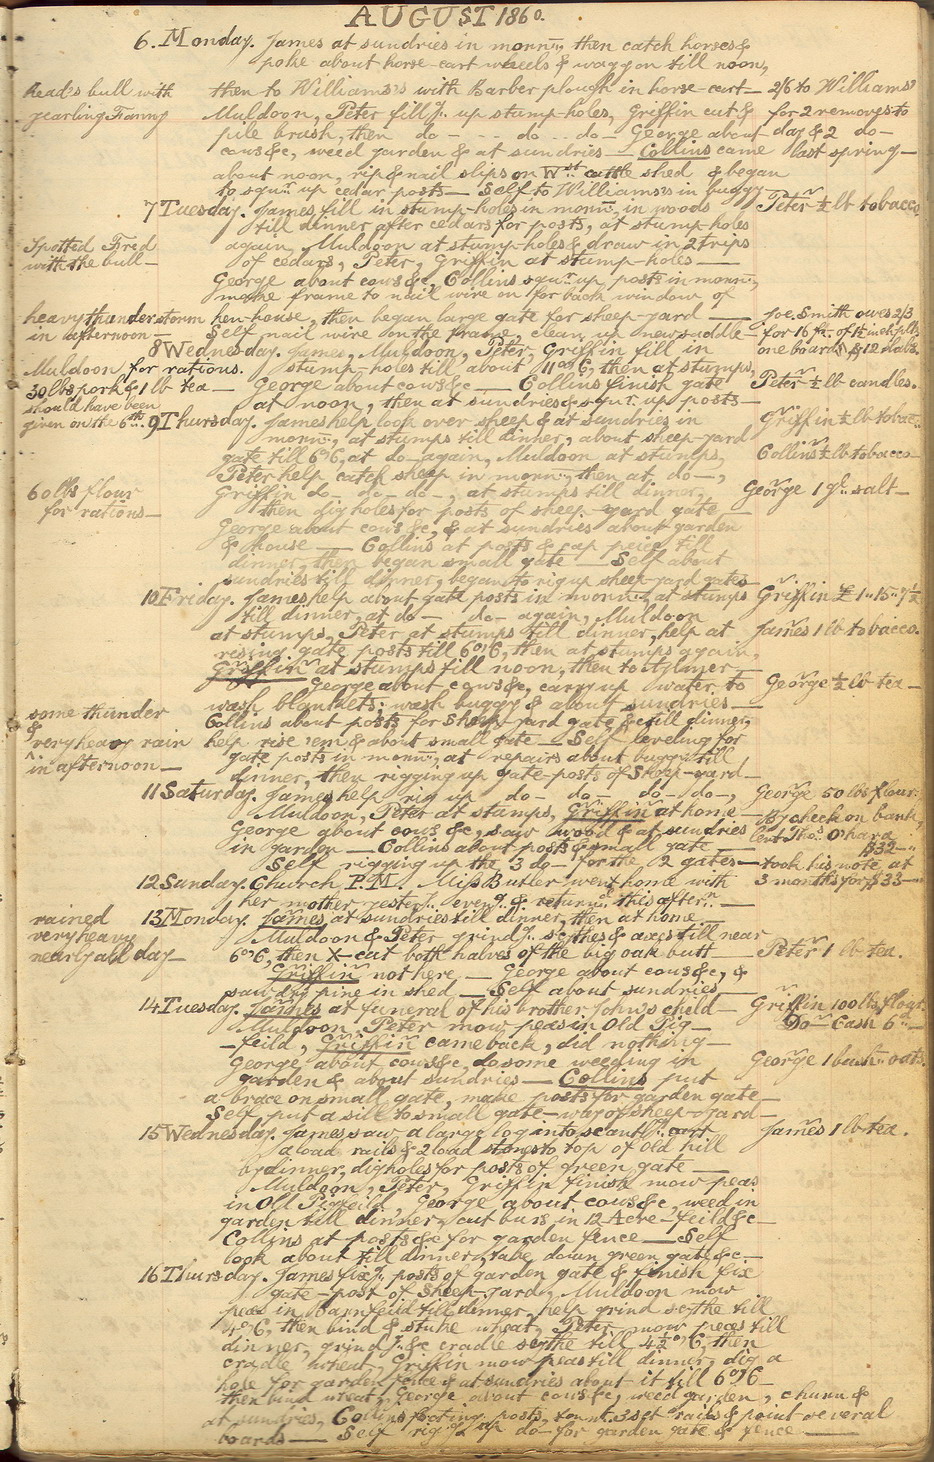 AUGUST 1860.
6. Monday. James at sundries in mornng, then catch horses &
poke about horse-cart wheels & waggon till noon,
heads bull with
yearling Fanny
then to Williams's with Barber plough in horse-cart — 2/6 to Williams
Muldoon, Peter fillg. up stump-holes, Griffin cut & for 2 removes to
pile brush, then do - - - do - do - George about day & 2 do -
cows &c, weed garden & at sundries — Collins came last spring —
about noon, rip & nail slips on Wst cattle shed & began
to squr. up cedar posts — Self to Williams's in buggy
7 Tuesday. James fill in stump-holes in mornn, in woods Peter ½ lb tobacco
till dinner after cedars for posts, at stump-holes
Spotted Fred
with the bull —
again, Muldoon at stump-holes & draw in 2 trips
of cedars, Peter, Griffin at stump-holes —
George about cows &c, Collins squr. up posts in mornn,
make frame to nail wire on for back window of
heavy thunder storm
in afternoon —
hen-house, then began large gate for sheep-yard — Joe. Smith owes 2/3
Self nail wire on the frame, clean up new saddle — for 16 ft. of 1½ inch plk,
8 Wednesday. James, Muldoon, Peter, Griffin fill in one board & 12 slabs.
Muldoon for rations.
30 lbs pork & 1 lb tea —
should have been
given on the 6th.
stump-holes till about 11 o'C, then at stumps,
George about cows &c — Collins finish gate Peter ½ lb candles.
at noon, then at sundries & squr. up posts —
9 Thursday. James help look over sheep & at sundries in Griffin ½ lb tobac.
mornn, at stumps till dinner, about sheep-yard
gate till 6 o'C, at do - again, Muldoon at stumps, Collins ½ lb tobacco —
Peter help catch sheep in mornn, then at do -,
60 lbs flour
for rations —
Griffin do - do - do -, at stumps till dinner, George 1 qr. salt —
then dig holes for posts of sheep-yard gate —
George about cows &c, & at sundries about garden
& house — Collins at posts & cap peice till
dinner, then began small gate — Self about
sundries till dinner, began to rig up sheep-yard gates
10 Friday. James help about gate posts in mornn, at stumps Griffin £1..15..7½
till dinner, at do - do - again, Muldoon
at stumps, Peter at stumps till dinner, help at James 1 lb tobacco.
rising gate posts till 6 o'C, then at stumps again,
Griffin at stumps till noon, then to Aylmer —
George about cows &c, carry up water to George ½ lb tea —
wash blankets, wash buggy & about sundries —
some thunder
&
very heavy rain
in afternoon —
Collins about posts for sheep-yard gate &c till dinner,
help rise 'em & about small gate — Self leveling for
gate posts in mornn, at repairs about buggy till
dinner, then rigging up gate-posts of sheep-yard —
11 Saturday. James help rig up do - do - do - do -, George 50 lbs flour.
Muldoon, Peter at stumps, Griffin at home — By check on bank,
George about cows &c, saw wood & at sundries lent Thos. O'hara
in garden — Collins about posts & small gate — $32 —
Self rigging up the 3 do - for the 2 gates — took his note at
12 Sunday. Church, P.M. Miss Butler went home with 3 months for $33 —
her mother yestery. eveng. & returned this aftern. —
rained
very heavy
nearly all day —
13 Monday. James at sundries till dinner, then at home —
Muldoon & Peter grindg. scythes & axes till near
6 o'C, then X-cut both halves of the big oak butt — Peter 1 lb tea.
Griffin not here — George about cows &c, &
saw dry pine in shed — Self about sundries —
14 Tuesday. James at funeral of his brother John's cheld — Griffin 100 lbs flour.
Muldoon, Peter mow peas in Old Pig — Do — Cash 6d —
-feild, Griffin came back, did nothing —
George about cows &c, do some weeding in George 1 bush. oats.
garden & about sundries — Collins put
a brace on small gate, make posts for garden gate —
Self put a sill to small gate-way of sheep-yard —
15 Wednesday. James saw a large log into scantlg. cart James 1 lb tea.
a load rails & 2 load stones to top of Old hill
by dinner, dig holes for posts of green gate —
Muldoon, Peter, Griffin finish mow peas
in Old Pigfeild, George about cows &c, weed in
garden till dinner, cut burs in 12 Acre-feild &c —
Collins at posts &c for garden fence — Self
look about till dinner, take down green gate &c —
16 Thursday. James fixg. posts of garden gate & finish fix
gate-post of sheep-yard, Muldoon mow
peas in Barnfeild till dinner, help grind scythe till
4 o'C, then bind & stuke wheat, Peter mow peas till
dinner, grindg. &c cradle scythe till 4½ o'C, then
cradle wheat, Griffin mow peas till dinner, dig a
hole for garden fence & at sundries about it till 6 o'C
then bind wheat, George about cows &c, weed garden, churn &
at sundries, Collins posts, 3 set rails & point several
boards — Self rigg. up do - for garden gate & fence —